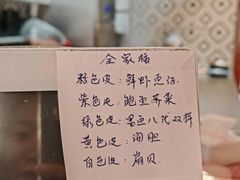 全家福
粉色皮：鲜虾
紫色皮：鲍鱼
绿色皮：墨鱼八爪双拼
黄色皮：海胆
白色皮：扇贝